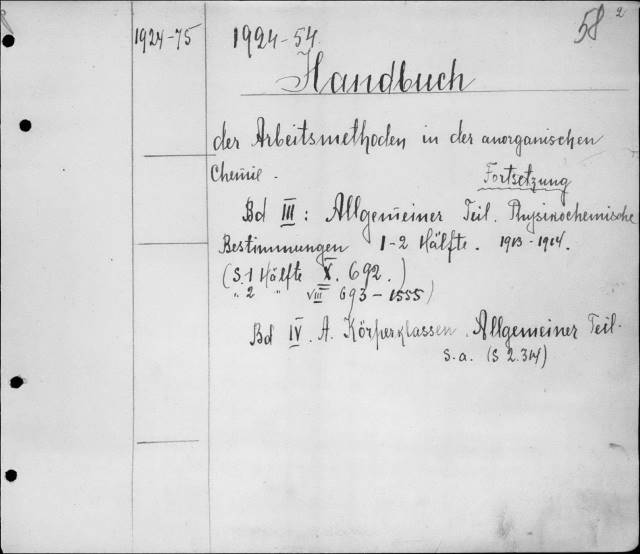 1924-75
1924-54.
58 2
Handbuch
der Arbeitsmethoden in der anorganischen
Chemie.
Fortsetzung
Bd III: Allgemeiner Teil. Physikochemische
Bestimmungen 1-2 Hälfte. 1913-1914.
(S. 1 Hälfte X. 692.)
" 2 " VIII 693-1555)
Bd IV. A. Körperklassen. Allgemeiner Teil.
s.a. (S 2.314)